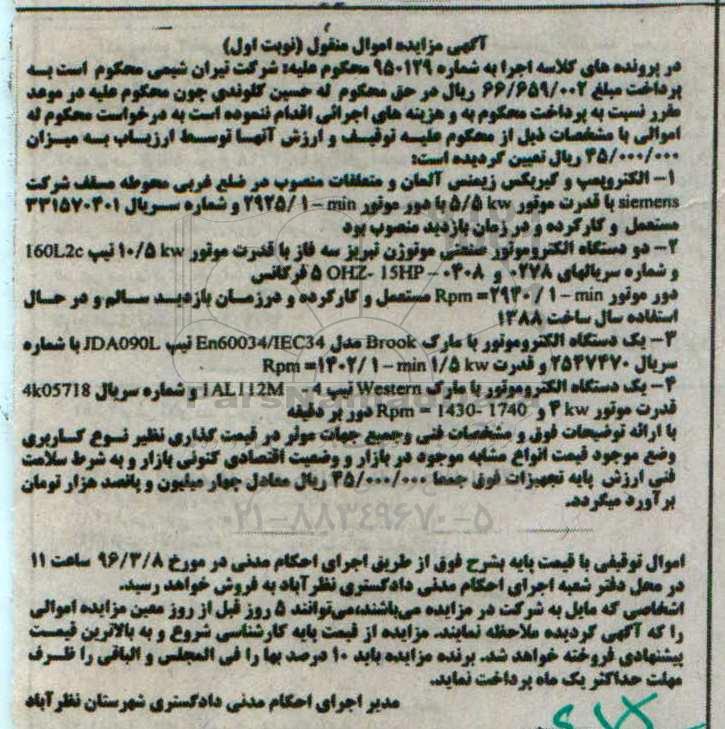 آگهی مزایده اموال منقول (نوبت اول)
در پرونده های کلاسه اجرا به شماره ۹۵۰۱۲۹ محکوم علیه: شرکت تیران شیمی محکوم است به
پرداخت مبلغ ۶۶/۶۵۹/۰۰۲ ریال در حق محکوم له حسین کلوندی چون محکوم علیه در موعد
مقرر نسبت به پرداخت محکوم به و هزینه های اجرائی اقدام ننموده است به درخواست محکوم له
اموالی با مشخصات ذیل از محکوم علیه توقیف و ارزش آنها توسط ارزیاب به میزان
۴۵/۰۰۰/۰۰۰ ریال تعیین گردیده است:
۱- الکتروپمپ و گیربکس زیمنس آلمان و متعلقات منصوب در ضلع غربی محوطه مسقف شرکت
siemens با قدرت موتور ۵/۵ kw با دور موتور ۲۹۲۵/ ۱- min و شماره سریال ۳۳۱۵۷۰۴۰۱
مستعمل و کارکرده و در زمان بازدید منصوب بود
۲- دو دستگاه الکتروموتور صنعتی موتوژن تبریز سه فاز با قدرت موتور ۱۰/۵ kw تیپ 160L2c
و شماره سریالهای ۰۲۷۸ و ۰۴۰۸ - OHZ- 15HP ۵ فرکانس
دور موتور Rpm =۲۹۴۰/ ۱- min مستعمل و کارکرده و درزمان بازدید سالم و در حال
استفاده سال ساخت ۱۳۸۸
۳- یک دستگاه الکتروموتور با مارک Brook مدل En60034/IEC34 تیپ JDA090L با شماره
سریال ۲۵۴۷۴۷۰ و قدرت ۱/۵ kw Rpm =۱۴۰۲/ ۱- min
۴- یک دستگاه الکتروموتور با مارک Western تیپ 4- 1AL112M و شماره سریال 4k05718
قدرت موتور ۴ kw و Rpm = 1430- 1740 دور بر دقیقه
با ارائه توضیحات فوق و مشخصات فنی وجمیع جهات موثر در قیمت گذاری نظیر نوع کاربری
وضع موجود قیمت انواع مشابه موجود در بازار و وضعیت اقتصادی کنونی بازار و به شرط سلامت
فنی ارزش پایه تجهیزات فوق جمعا ۴۵/۰۰۰/۰۰۰ ریال معادل چهار میلیون و پانصد هزار تومان
برآورد میگردد.
۰۲۱-۸۸۳۴۹۶۷۰-۵
اموال توقیفی با قیمت پایه بشرح فوق از طریق اجرای احکام مدنی در مورخ ۹۶/۳/۸ ساعت ۱۱
در محل دفتر شعبه اجرای احکام مدنی دادگستری نظرآباد به فروش خواهد رسید.
اشخاصی که مایل به شرکت در مزایده می‌باشند،می‌توانند ۵ روز قبل از روز معین مزایده اموالی
را که آگهی گردیده ملاحظه نمایند. مزایده از قیمت پایه کارشناسی شروع و به بالاترین قیمت
پیشنهادی فروخته خواهد شد. برنده مزایده باید ۱۰ درصد بها را فی المجلس و الباقی را ظرف
مهلت حداکثر یک ماه پرداخت نماید.
مدیر اجرای احکام مدنی دادگستری شهرستان نظرآباد